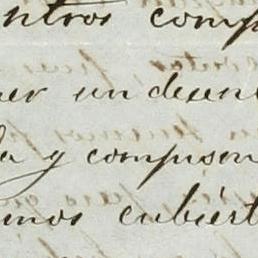 ntros comp
er un desen
la y compusen
imos cubiert